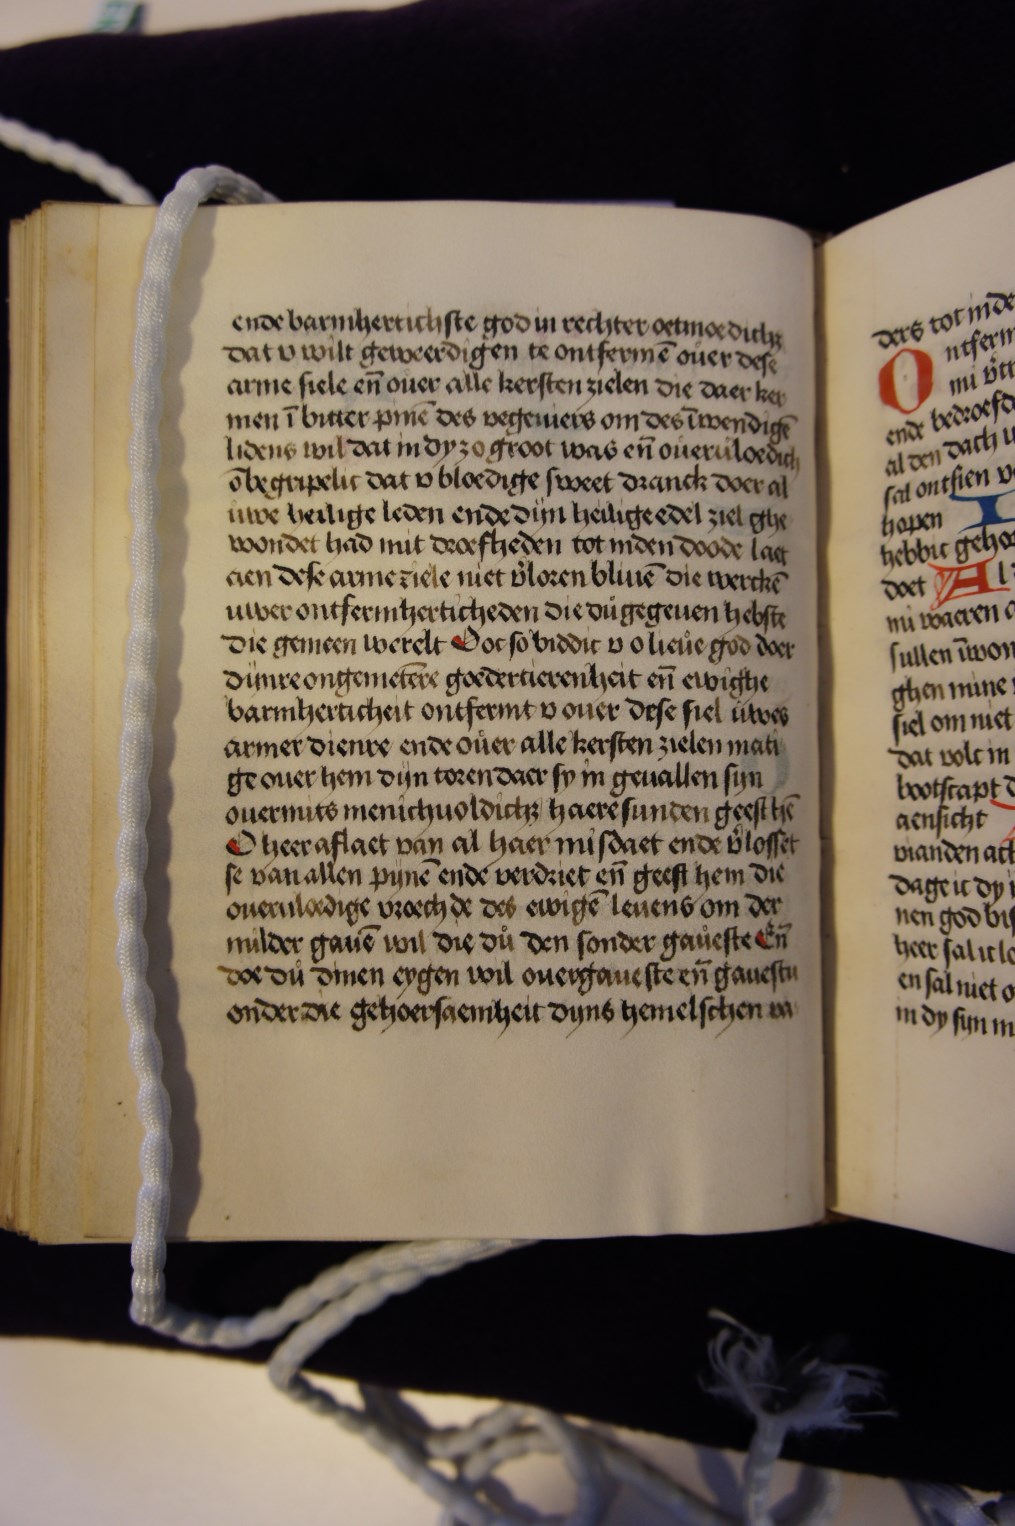 ende barmhertichste god in rechter oetmoedich
dat v wilt geweerdigen te ontfermē ouer dese
arme siele en̄ ouer alle kersten zielen die daer ker
men ī bitter pinē des vegeuiers om des īwendigē
lidens wil dat in dy zo groot was en̄ oueruloedich
ōbegripelic dat v bloedige sweet dranck doer al
uwe heilige leden ende dijn heilige edel ziel ghe
wondet had mit droefheden tot in den doode laet
aen dese arme ziele niet v̉loren bliuē die werckē
uwer ontfermherticheden die dů gegeuen hebste
die gemeen werelt Oec so biddic v o lieue god doer
dijnre ongemetēre goedertierenheit en̄ ewighe
barmherticheit ontfermt v ouer dese siel uwes
armer dienre ende ouer alle kersten zielen mati
ge ouer hem dijn toren daer sy in geuallen sijn
ouermits menichuoldich haere sunden geest hē
O heer aflaet van al haer misdaet ende v̉losset
se van allen pijnē ende verdriet en̄ geest hem die
oueruloedige vroechde des ewigē leuens om der
milder gauē wil die dů den sonder gaueste En̄
doe dů dinen eygen wil ouergaueste en̄ gauestu
onder die gehoersaemheit dijns hemelschen va
ders tot in de
O ntferm
mi
ende bedroefd
al den dach
sal ontsien
hopen I
hebbic geho
doet Al
mi waeren
sullen īwon
ghen mine
siel om niet
dat volc in
bootscapt
aensicht
vianden
dage ic dy
nen god
heer sal ic
en sal niet
in dy sijn